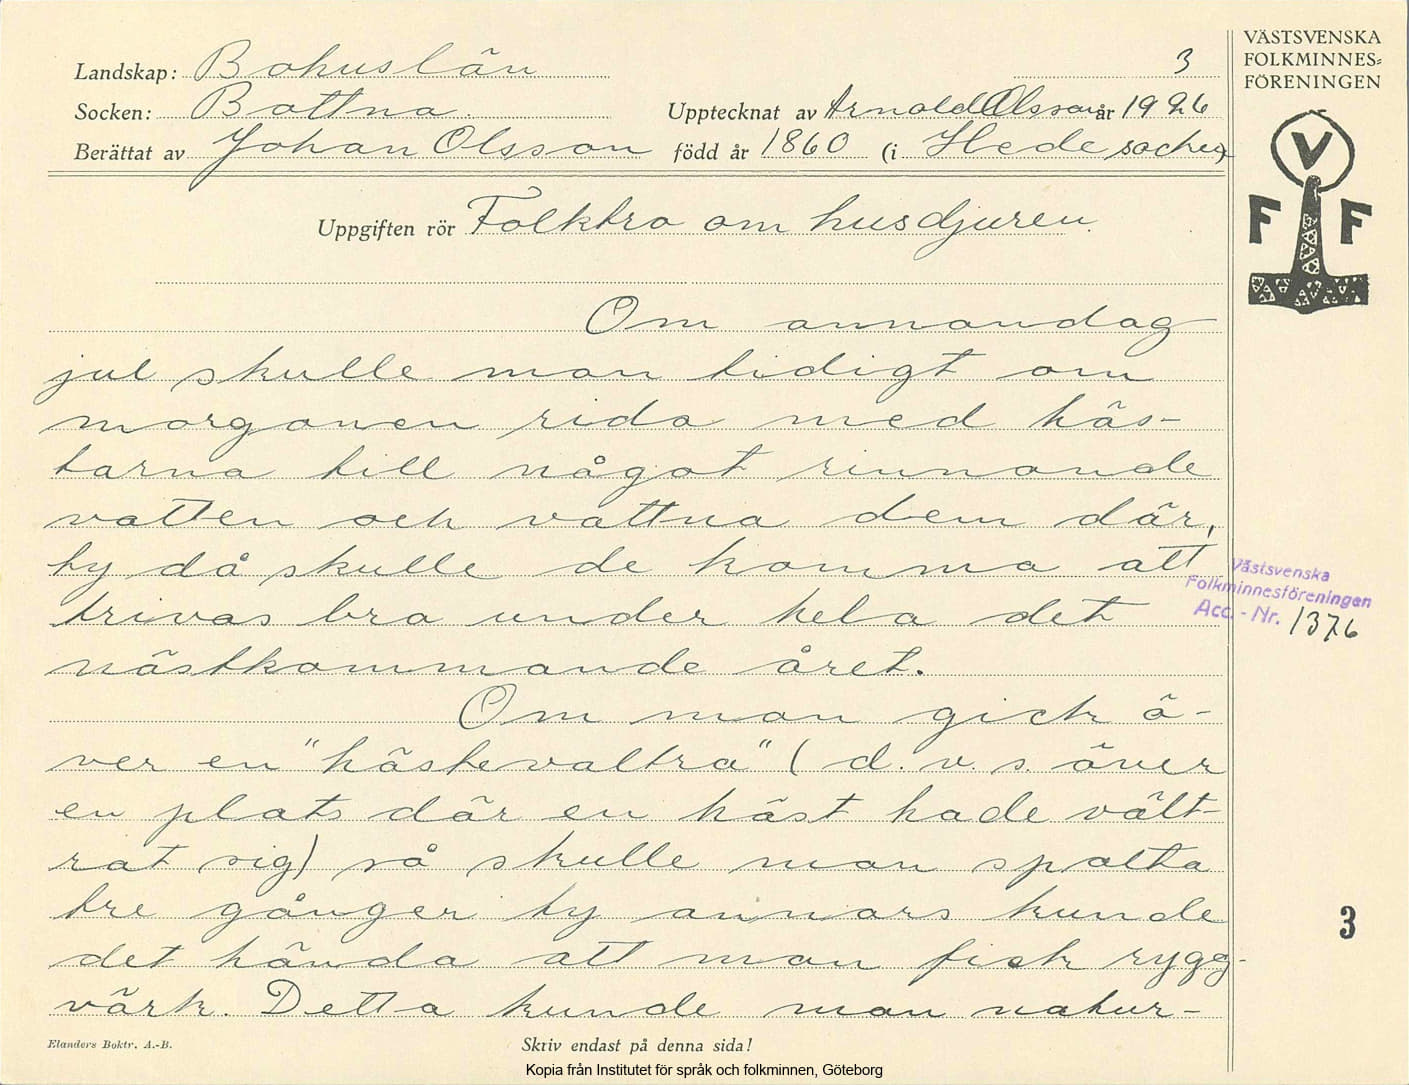 Landskap: Bohuslän
3
Socken: Bottna. Upptecknat av Arnold Olsson år 1926
Berättat av Johan Olsson född år 1860 (i Hede socken)
Uppgiften rör Folktro om husdjuren.
Om annandag
jul skulle man tidigt om
morgonen rida med häs-
tarna till något rinnande
vatten och vattna dem där,
ty då skulle de komma att
trivas bra under hela det
nästkommande året.
Om man gick ö-
ver en "hästevaltra" (d.v.s. över
en plats där en häst hade vält-
rat sig) så skulle man spotta
tre gånger ty annars kunde
det hända att man fick rygg-
värk. Detta kunde man natur-
Elanders Boktr. A.-B.
Skriv endast på denna sida!
Kopia från Institutet för språk och folkminnen, Göteborg
VÄSTSVENSKA
FOLKMINNES-
FÖRENINGEN
V
F F
Västsvenska
Folkminnesföreningen
Acc. - Nr. 1376
3